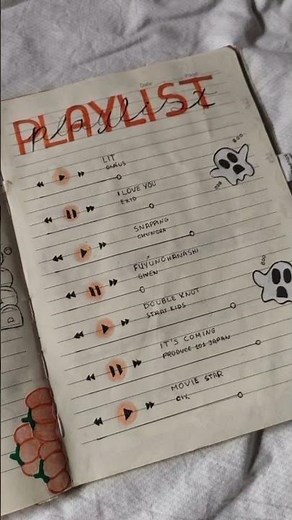 PLAYLIST
playlist
LIT
ONEUS
I LOVE YOU
EXID
SNAPPING
CHUNGHA
FUYUNOHANASHI
GIVEN
DOUBLE KNOT
STRAY KIDS
IT'S COMING
PRODUCE 101 JAPAN
MOVIE STAR
CIX
BOO
BOO